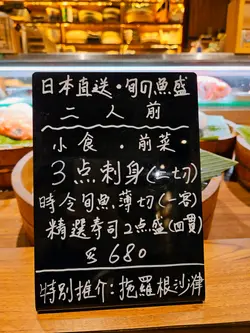 日本直送・旬の魚盛
二人前
小食・前菜
3点刺身(二切)
時令旬魚薄切(一客)
精選寿司2点盛(四貫)
$680
特別推介:拖羅根沙律